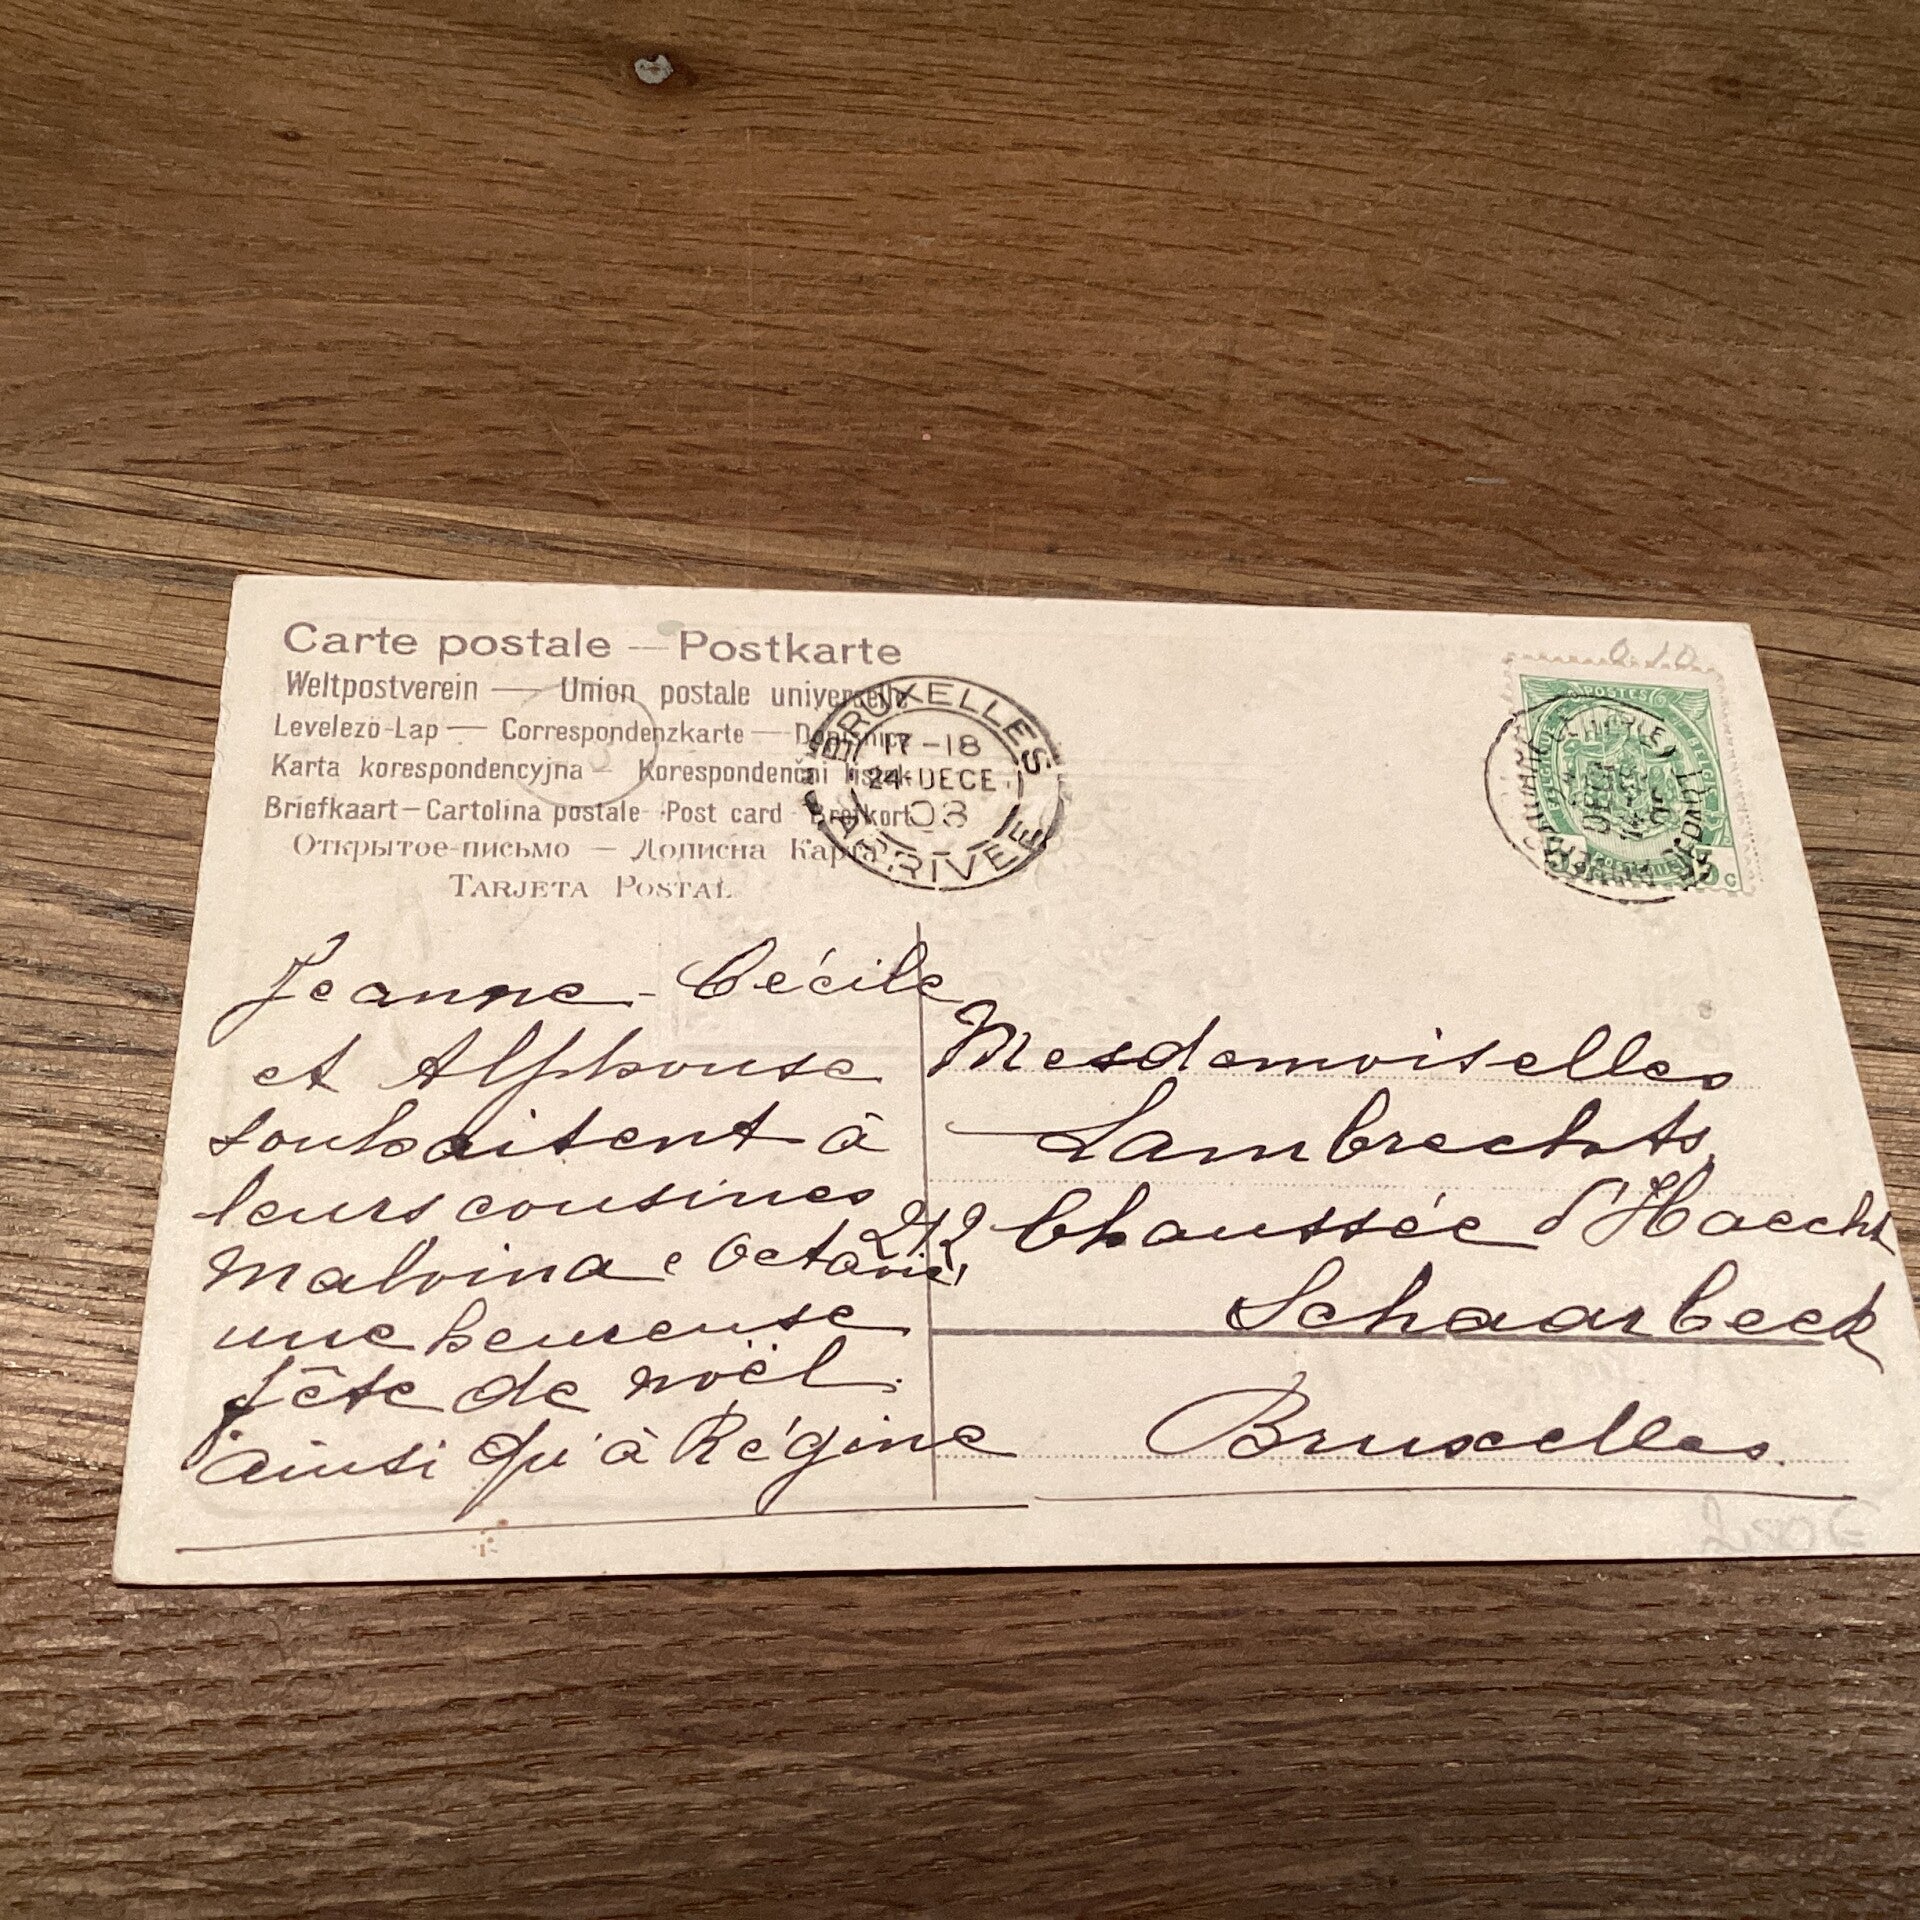 Carte postale — Postkarte
Weltpostverein — Union postale universelle
Levelező-Lap — Correspondenzkarte — Dopisnice
Karta korespondencyjna — Korespondenčni listek
Briefkaart — Cartolina postale - Post card - Brefkort
Открытое-письмо — Дописна Карта
TARJETA POSTAL
BRUXELLES
17-18
24 DECE
03
ARRIVEE
POSTES
Jeanne - Cécile
et Alphonse
souhaitent à
leurs cousines
Malvina e Octavie,
une heureuse
fête de noël.
ainsi qu'à Régine
Mesdemoiselles
Lambrechts
212 Chaussée d'Haecht
Schaarbeek
Bruxelles.